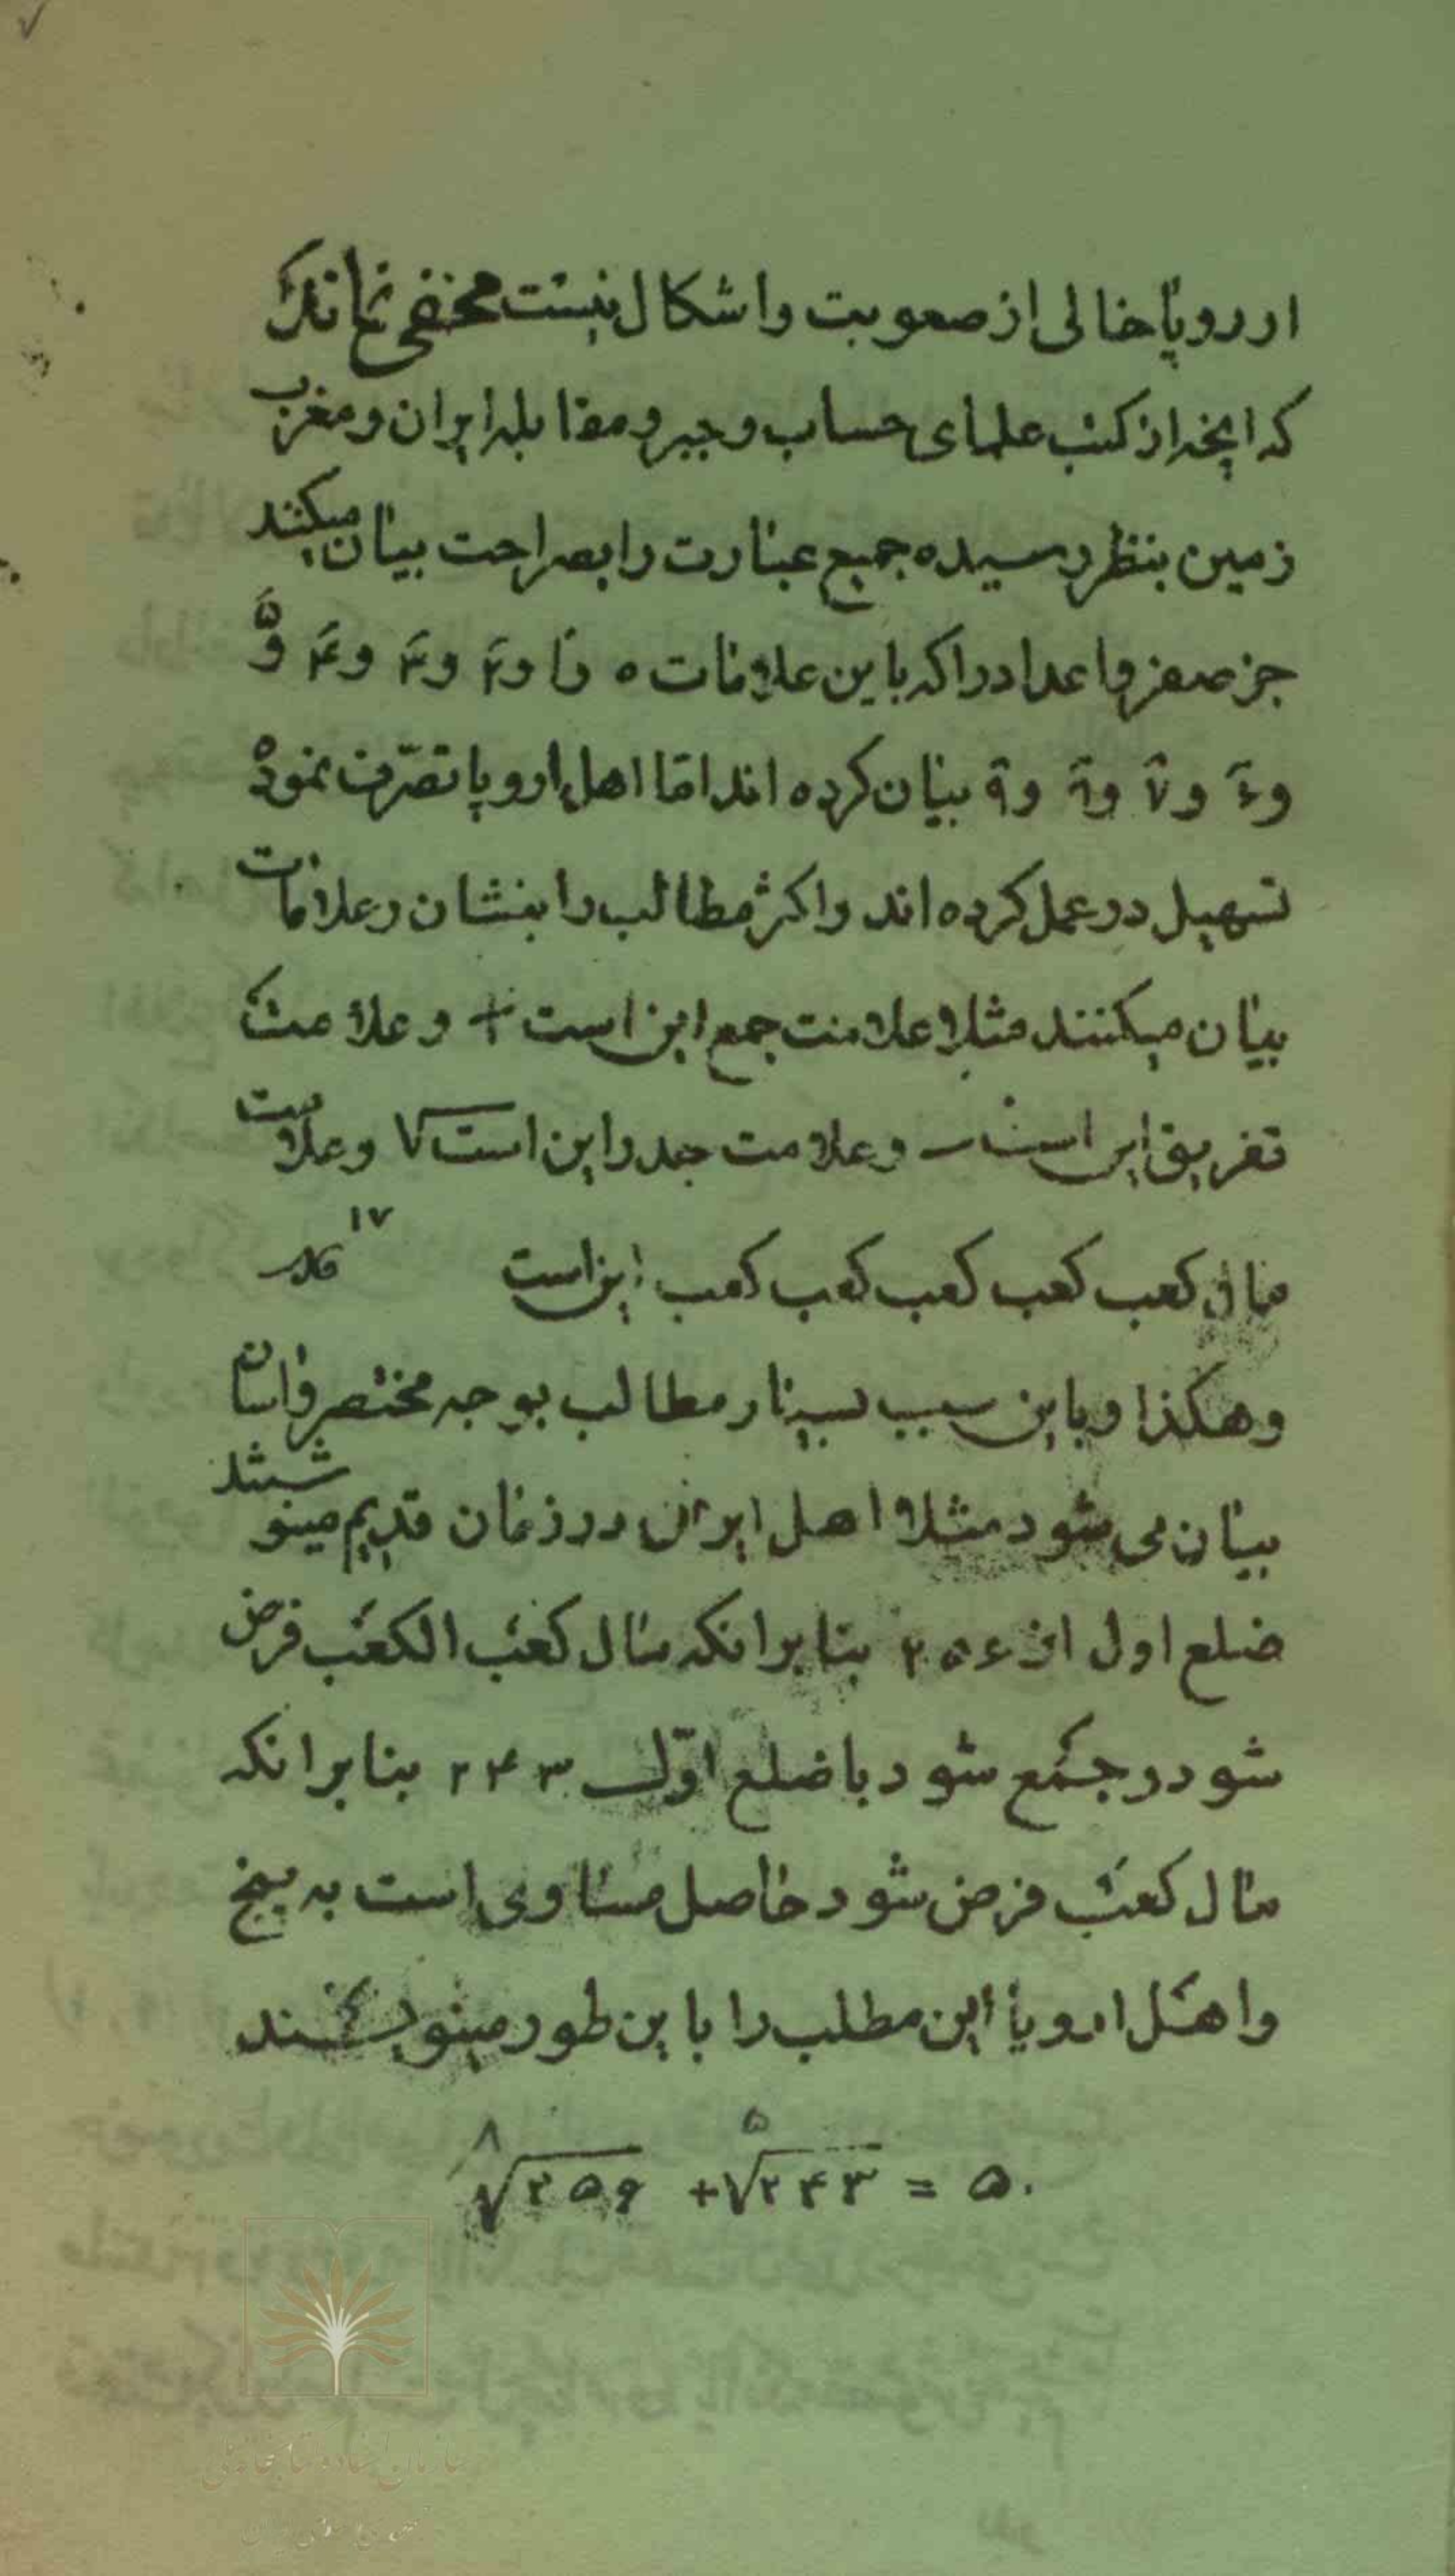 ارروپا خالی از صعوبت و اشکال نیست مخفی نماند
که انچه از کتب علمای حساب و جبر و مقابله ایران و مغرب
زمین بنظر رسیده جمیع عبارت را بصراحت بیان میکنند
جز صفر و اعداد را که باین علامات ۰ و ۱ و ۲ و ۳ و ۴ و ۵
و ۶ و ۷ و ۹ و ۹ بیان کرده اند اما اهل اروپا تصرّف نموده
تسهیل در عمل کرده اند و اکثر مطالب را بنشان و علامات
بیان میکنند مثلا علامت جمع این است + و علامت
تفریق این است − و علامت جذر این است √ و علامت
مال کعب کعب کعب کعب کعب این است ۱۷
و هکذا و باین سبب بسیار مطالب بوجه مختصر و اسان
بیان می شود مثلا اهل ایران در زمان قدیم مینوشتند
ضلع اول از ۲۵۶ بنابرانکه مال کعب الکعب فرض
شود و جمع شود با ضلع اوّل ۲۴۳ بنابرانکه
مال کعب فرض شود حاصل مساوی است به پنج
و اهل اروپا این مطلب را باین طور مینویسند
⁸√۲۵۶ + ⁵√۲۴۳ = ۵.
سازمان اسناد و کتابخانه ملی
جمهوری اسلامی ایران